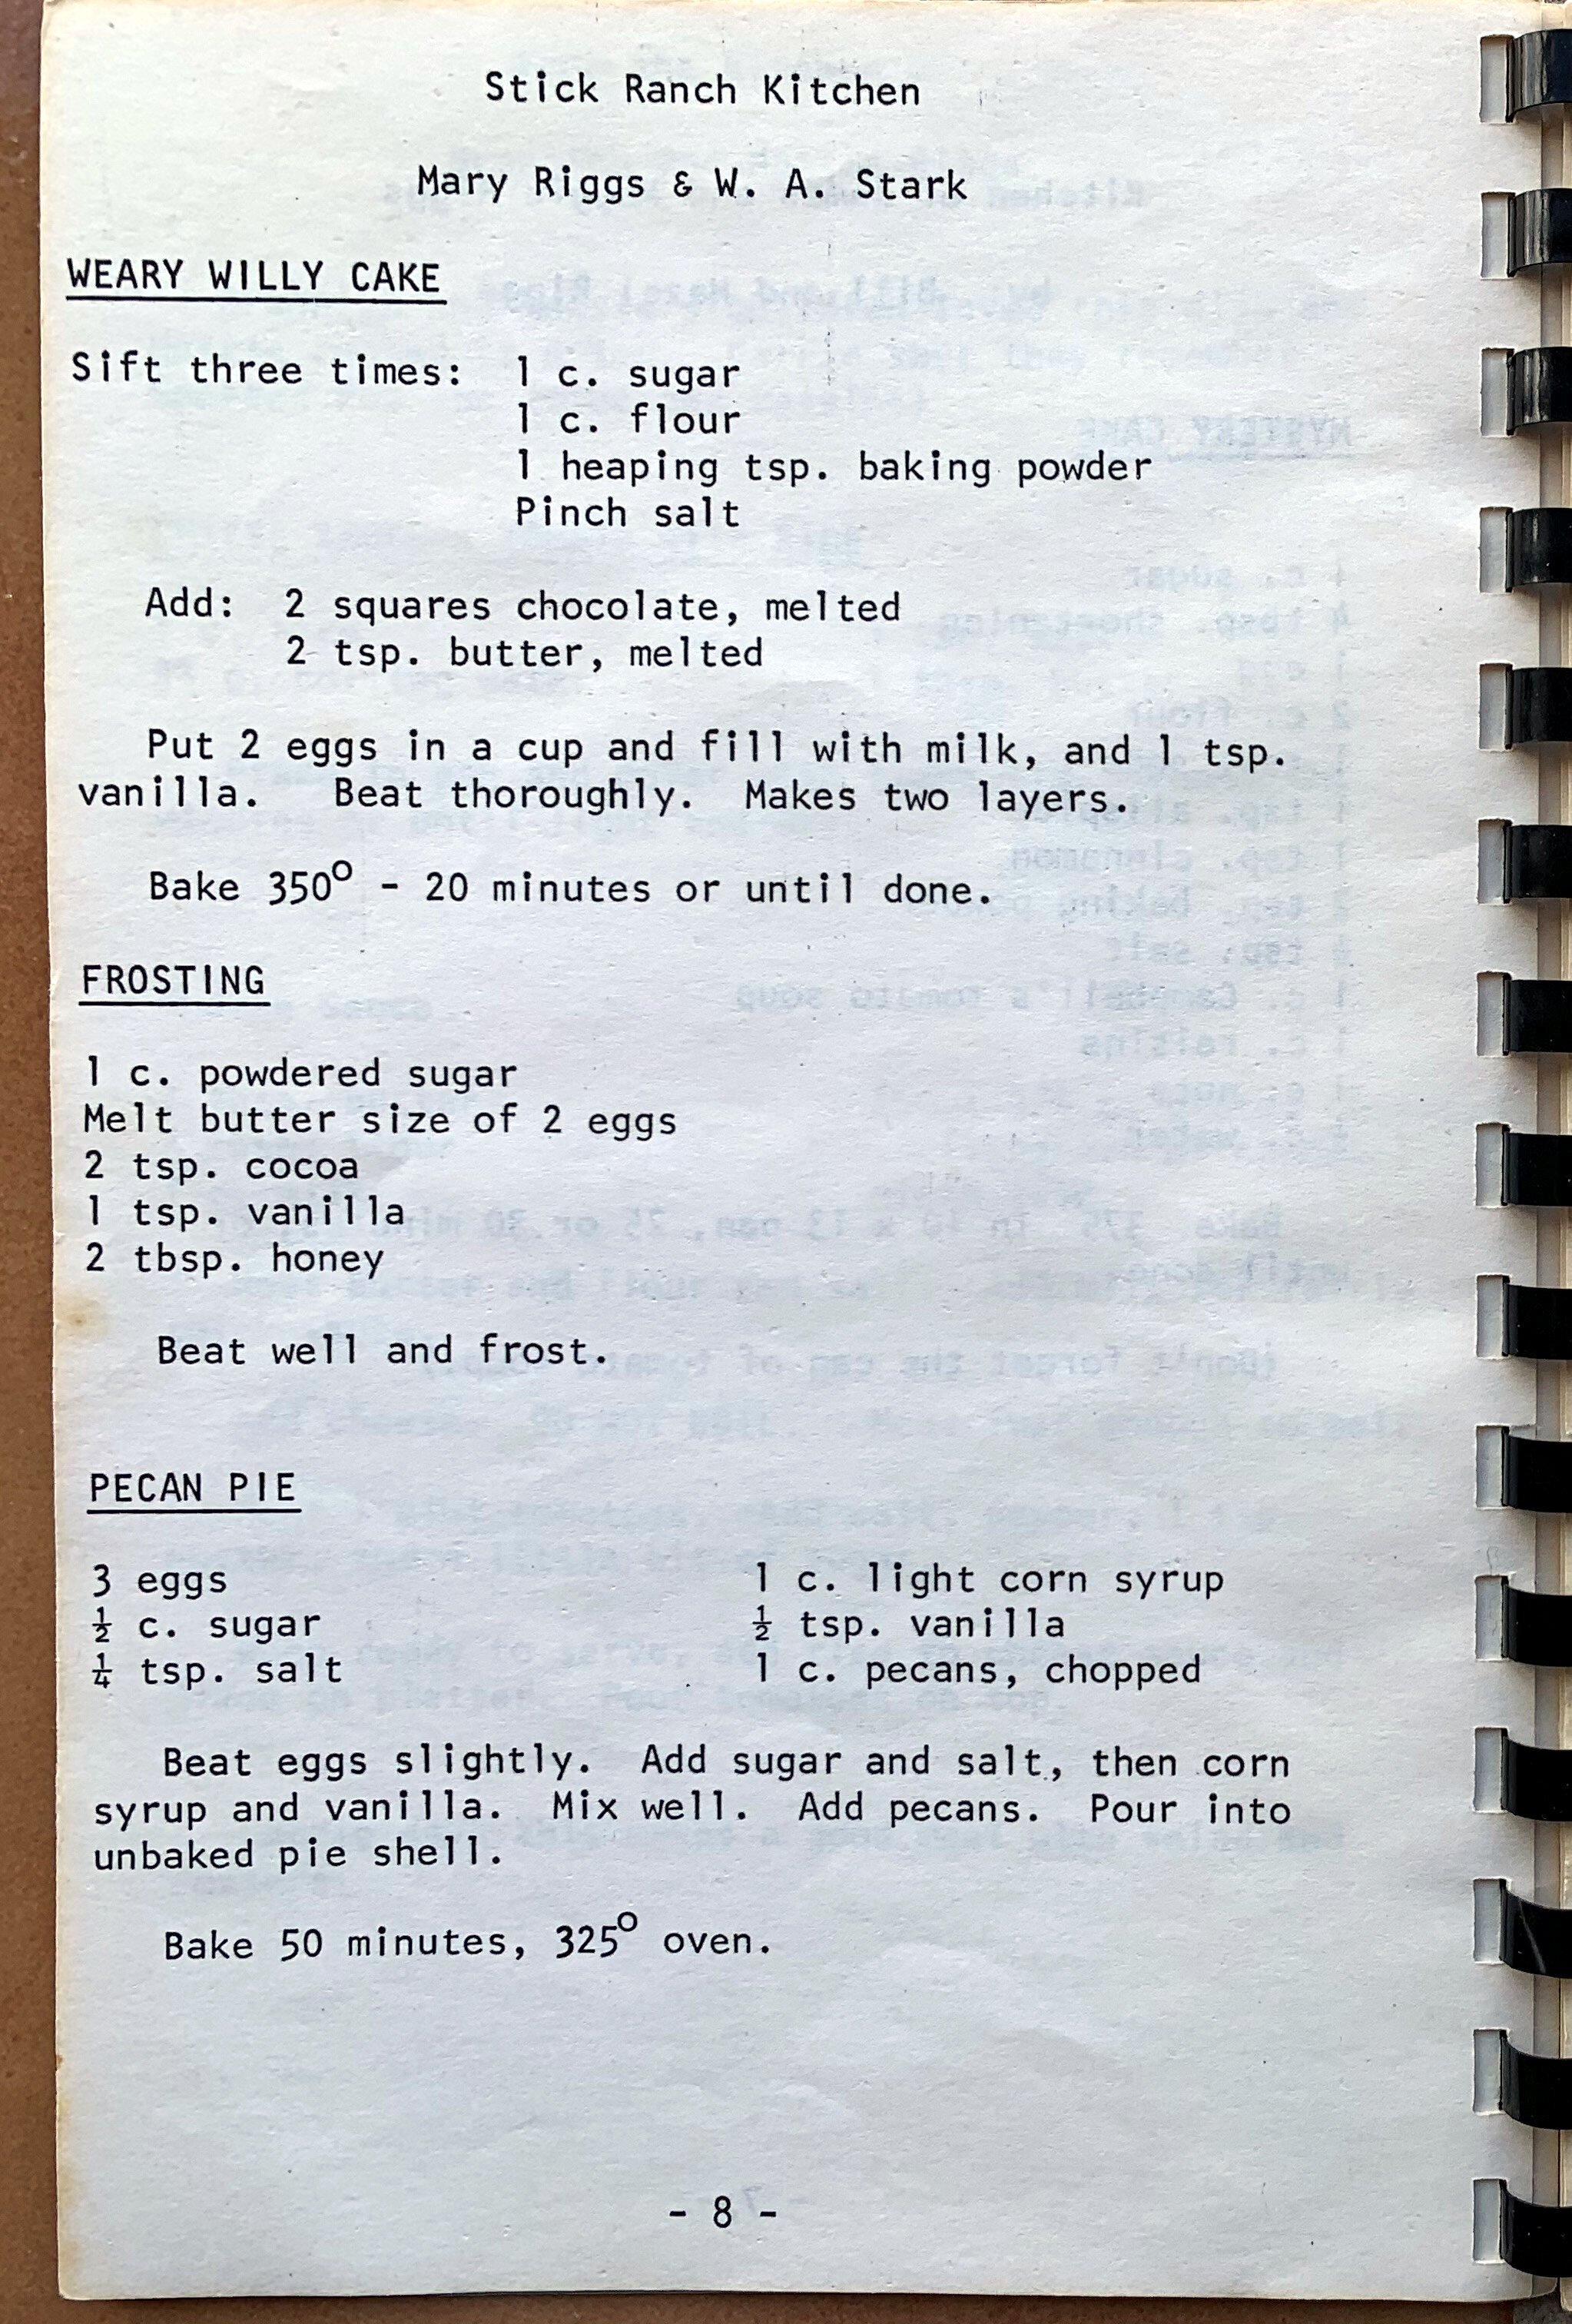 Stick Ranch Kitchen
Mary Riggs & W. A. Stark
WEARY WILLY CAKE
Sift three times: 1 c. sugar
1 c. flour
1 heaping tsp. baking powder
Pinch salt
Add: 2 squares chocolate, melted
2 tsp. butter, melted
Put 2 eggs in a cup and fill with milk, and 1 tsp.
vanilla. Beat thoroughly. Makes two layers.
Bake 350° - 20 minutes or until done.
FROSTING
1 c. powdered sugar
Melt butter size of 2 eggs
2 tsp. cocoa
1 tsp. vanilla
2 tbsp. honey
Beat well and frost.
PECAN PIE
3 eggs
½ c. sugar
¼ tsp. salt
1 c. light corn syrup
½ tsp. vanilla
1 c. pecans, chopped
Beat eggs slightly. Add sugar and salt, then corn
syrup and vanilla. Mix well. Add pecans. Pour into
unbaked pie shell.
Bake 50 minutes, 325° oven.
- 8 -